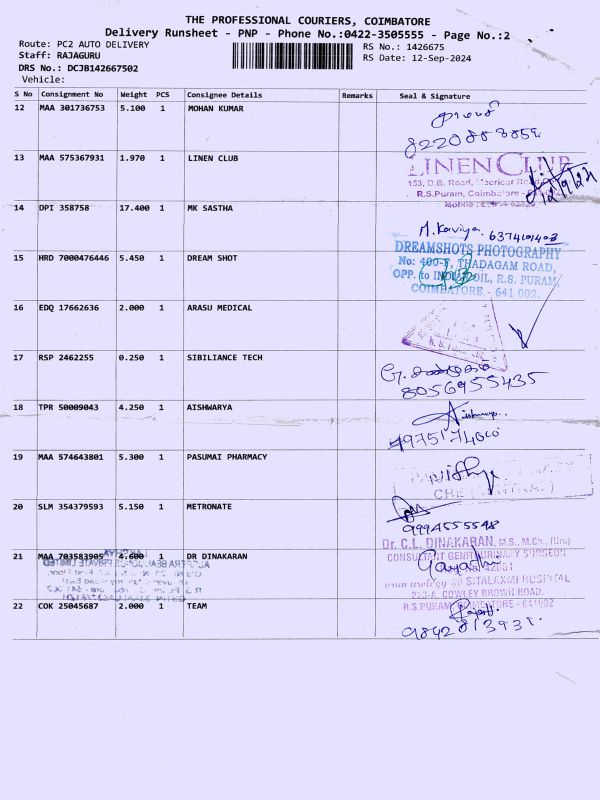 THE PROFESSIONAL COURIERS, COIMBATORE
Delivery Runsheet - PNP - Phone No.:0422-3505555 - Page No.:2
Route: PC2 AUTO DELIVERY
RS No.: 1426675
Staff: RAJAGURU
RS Date: 12-Sep-2024
DRS No.: DCJB142667502
Vehicle:
S No Consignment No Weight PCS Consignee Details Remarks Seal & Signature
12 MAA 301736753 5.100 1 MOHAN KUMAR
13 MAA 575367931 1.970 1 LINEN CLUB
LINEN CLUB
153, D.B. Road,
R.S.Puram,
12/9/24
14 DPI 358758 17.400 1 MK SASTHA
M. Kaviya. 6374101403
15 HRD 7000476446 5.450 1 DREAM SHOT
DREAMSHOTS PHOTOGRAPHY
No: 400-F, THADAGAM ROAD,
OPP. to INDIAN OIL, R.S. PURAM,
COIMBATORE - 641 002.
16 EDQ 17662636 2.000 1 ARASU MEDICAL
17 RSP 2462255 0.250 1 SIBILIANCE TECH
8056955435
18 TPR 50009043 4.250 1 AISHWARYA
19 MAA 574643801 5.300 1 PASUMAI PHARMACY
20 SLM 354379593 5.150 1 METRONATE
9994555598
21 MAA 703583905 4.600 1 DR DINAKARAN
Dr. C.L. DINAKARAN, M.S., M.Ch., (Uro)
CONSULTANT GENITOURINARY SURGEON
Gayathri
urology @ SITALAXMI HOSPITAL
223-A, COWLEY BROWN ROAD,
R.S.PURAM, COIMBATORE - 641002
22 COK 25045687 2.000 1 TEAM